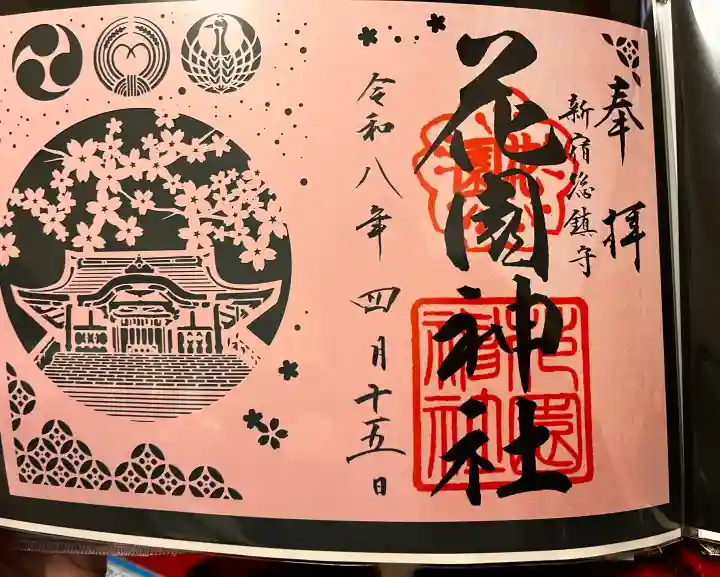 奉拝
新宿総鎮守
花園神社
花園神社
令和八年四月十五日